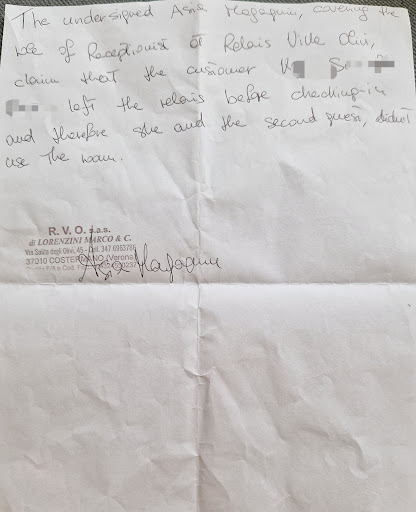 The undersigned Asia Magagnin, covering the
role of Receptionist at Relais Villa Olivi,
claim that the customer
left the relais before checking-in
and therefore she and the second guest, didn't
use the room.
R.V.O. s.a.s.
di LORENZINI MARCO & C.
Via Salita degli Olivi, 45 - Cell. 347 6963786
37010 COSTERMANO (Verona)
Asia Magagnin